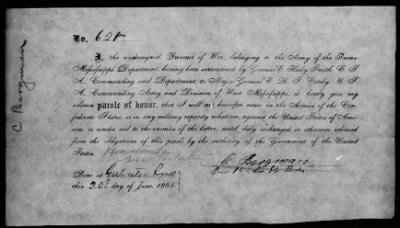 C Bergman
No. 628
I, the undersigned, Prisoner of War, belonging to the Army of the Trans-
Mississippi Department, having been surrendered by General E. Kirby Smith, C. S.
A., Commanding said Department, to Major-General E. R. S. Canby, U. S.
A., Commanding Army and Division of West Mississippi, do hereby give my
solemn parole of honor, that I will not hereafter serve in the Armies of the Con-
federate States, or in any military capacity whatever, against the United States of Ame-
rica, or render aid to the enemies of the latter, until duly exchanged, or otherwise released
from the obligations of this parole by the authority of the Government of the United
States.
C Bergmann
Done at Galveston Texas
this 30th day of June 1865